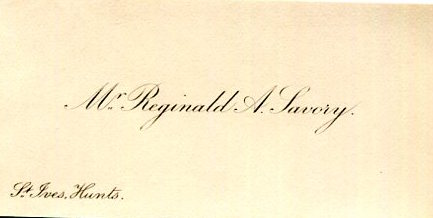 Mr. Reginald A. Savory.
St. Ives, Hunts.